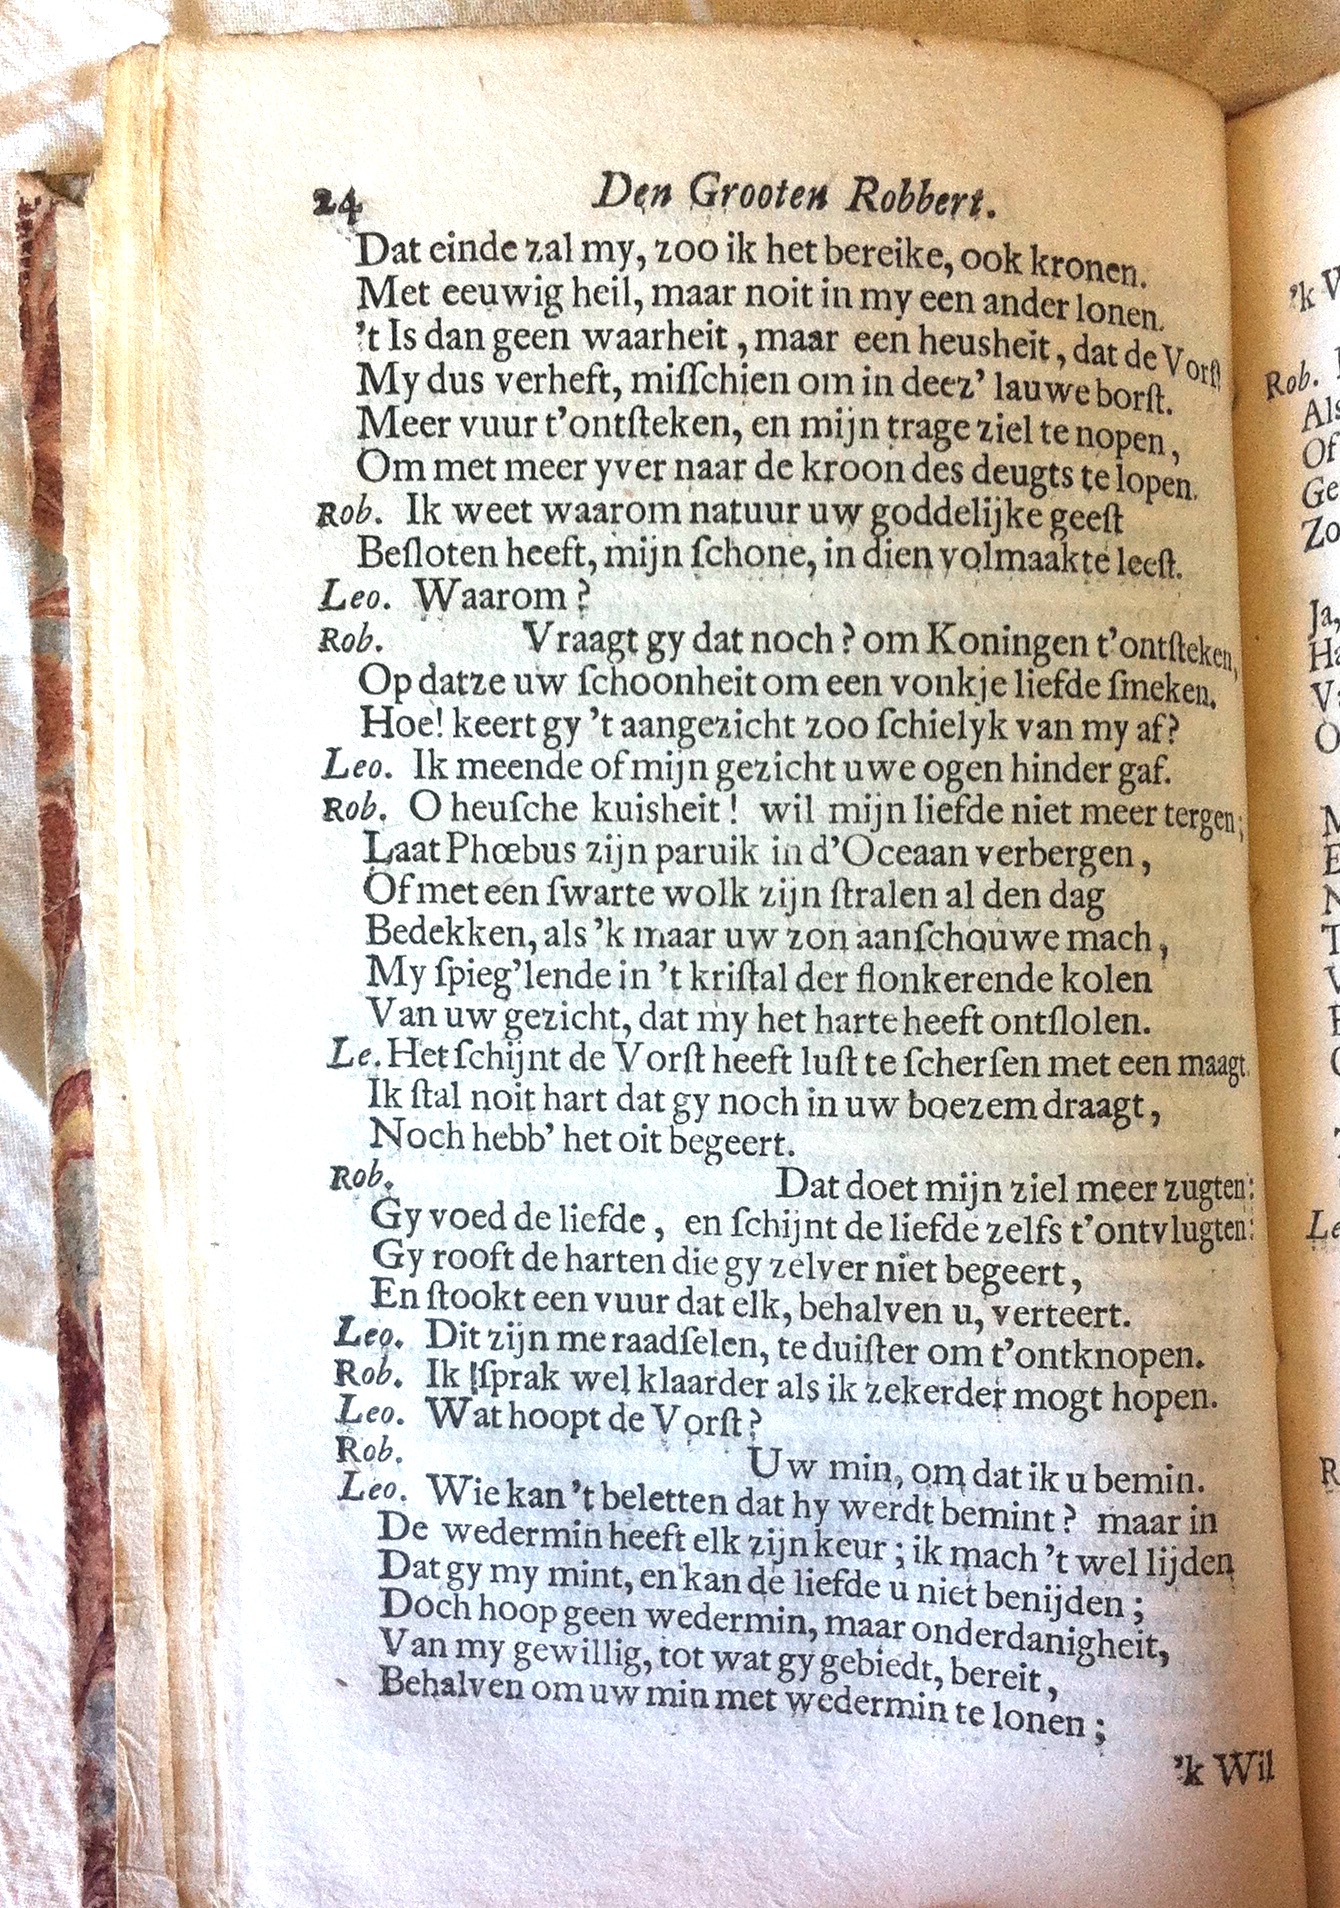 24 Den Grooten Robbert.
Dat einde zal my, zoo ik het bereike, ook kronen.
Met eeuwig heil, maar noit in my een ander lonen.
't Is dan geen waarheit, maar een heusheit, dat de Vorſt
My dus verheft, miſſchien om in deez' lauwe borſt.
Meer vuur t'ontſteken, en mijn trage ziel te nopen,
Om met meer yver naar de kroon des deugts te lopen.
Rob. Ik weet waarom natuur uw goddelijke geeſt
Beſloten heeft, mijn ſchone, in dien volmaakte leeſt.
Leo. Waarom?
Rob. Vraagt gy dat noch? om Koningen t'ontſteken,
Op datze uw ſchoonheit om een vonkje liefde ſmeken.
Hoe! keert gy 't aangezicht zoo ſchielyk van my af?
Leo. Ik meende of mijn gezicht uwe ogen hinder gaf.
Rob. O heuſche kuisheit! wil mijn liefde niet meer tergen;
Laat Phœbus zijn paruik in d'Oceaan verbergen,
Of met een ſwarte wolk zijn ſtralen al den dag
Bedekken, als 'k maar uw zon aanſchouwe mach,
My ſpieg'lende in 't kriſtal der flonkerende kolen
Van uw gezicht, dat my het harte heeft ontſlolen.
Le. Het ſchijnt de Vorſt heeft luſt te ſcherſen met een maagt.
Ik ſtal noit hart dat gy noch in uw boezem draagt,
Noch hebb' het oit begeert.
Rob. Dat doet mijn ziel meer zugten:
Gy voed de liefde, en ſchijnt de liefde zelfs t'ontvlugten:
Gy rooft de harten die gy zelver niet begeert,
En ſtookt een vuur dat elk, behalven u, verteert.
Leo. Dit zijn me raadſelen, te duiſter om t'ontknopen.
Rob. Ik ſprak wel klaarder als ik zekerder mogt hopen.
Leo. Wat hoopt de Vorſt?
Rob. Uw min, om dat ik u bemin.
Leo. Wie kan 't beletten dat hy werdt bemint? maar in
De wedermin heeft elk zijn keur; ik mach 't wel lijden
Dat gy my mint, en kan de liefde u niet benijden;
Doch hoop geen wedermin, maar onderdanigheit,
Van my gewillig, tot wat gy gebiedt, bereit,
Behalven om uw min met wedermin te lonen;
'k Wil
'k W
Rob.
Als
Of
Ge
Zo
Ja,
Ha